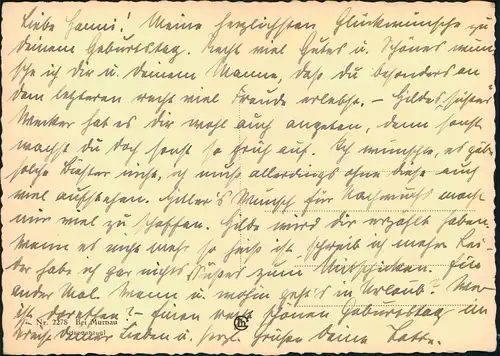 Liebe Hanni! Meine herzlichsten Glückwünsche zu
deinem Geburtstag. Recht viel Gutes u. Schönes wün-
sche ich dir u. deinem Manne, daß du besonders an
dem letzteren recht viel Freude erlebst, – Hildes
Wecker hat es dir wohl auch angetan, denn sonst
wachst du doch sonst so früh auf. Ich wünschte, es gäb
solche Biester nicht, ich muß allerdings ohne diese auch
viel aufstehen. Wunsch für Nachwuchs macht
mir viel zu schaffen. Hilde wird dir erzählt haben.
Wenn es nicht mehr so heiß ist, schreib ich mehr. Lei-
der habe ich gar nichts Süßes zum Mitschicken. Ein
ander Mal. Wann u. wohin geht's in Urlaub?
Einen recht schönen Geburtstag im
Kreise deiner Lieben u. herzl. Grüße deine
Nr. 2278 Bei Murnau